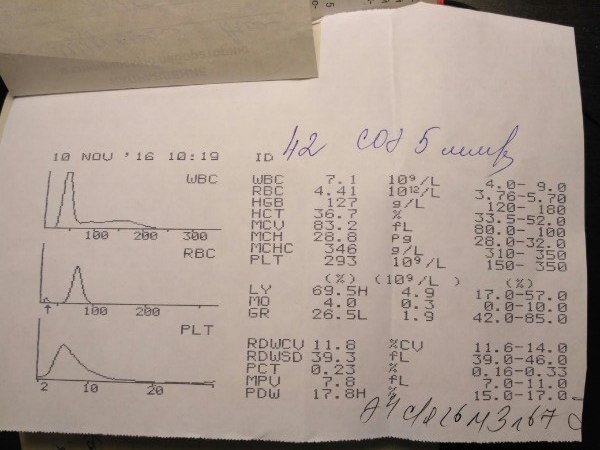 10 NOV '16 10:19 ID 42 СОЭ 5 мм/ч
WBC
100 200 300
RBC
100 200
PLT
2 10 20
WBC 7.1 10⁹/L 4.0- 9.0
RBC 4.41 10¹²/L 3.76-5.70
HGB 127 g/L 120- 180
HCT 36.7 % 33.5-52.0
MCV 83.2 fL 80.0- 100
MCH 28.8 Pg 28.0-32.0
MCHC 346 g/L 310- 350
PLT 293 10⁹/L 150- 350
(%) (10⁹/L ) (%)
LY 69.5H 4.9 17.0-57.0
MO 4.0 0.3 0.0-10.0
GR 26.5L 1.9 42.0-85.0
RDWCV 11.8 %CV 11.6-14.0
RDWSD 39.3 fL 39.0-46.0
PCT 0.23 % 0.16-0.33
MPV 7.8 fL 7.0-11.0
PDW 17.8H % 15.0-17.0